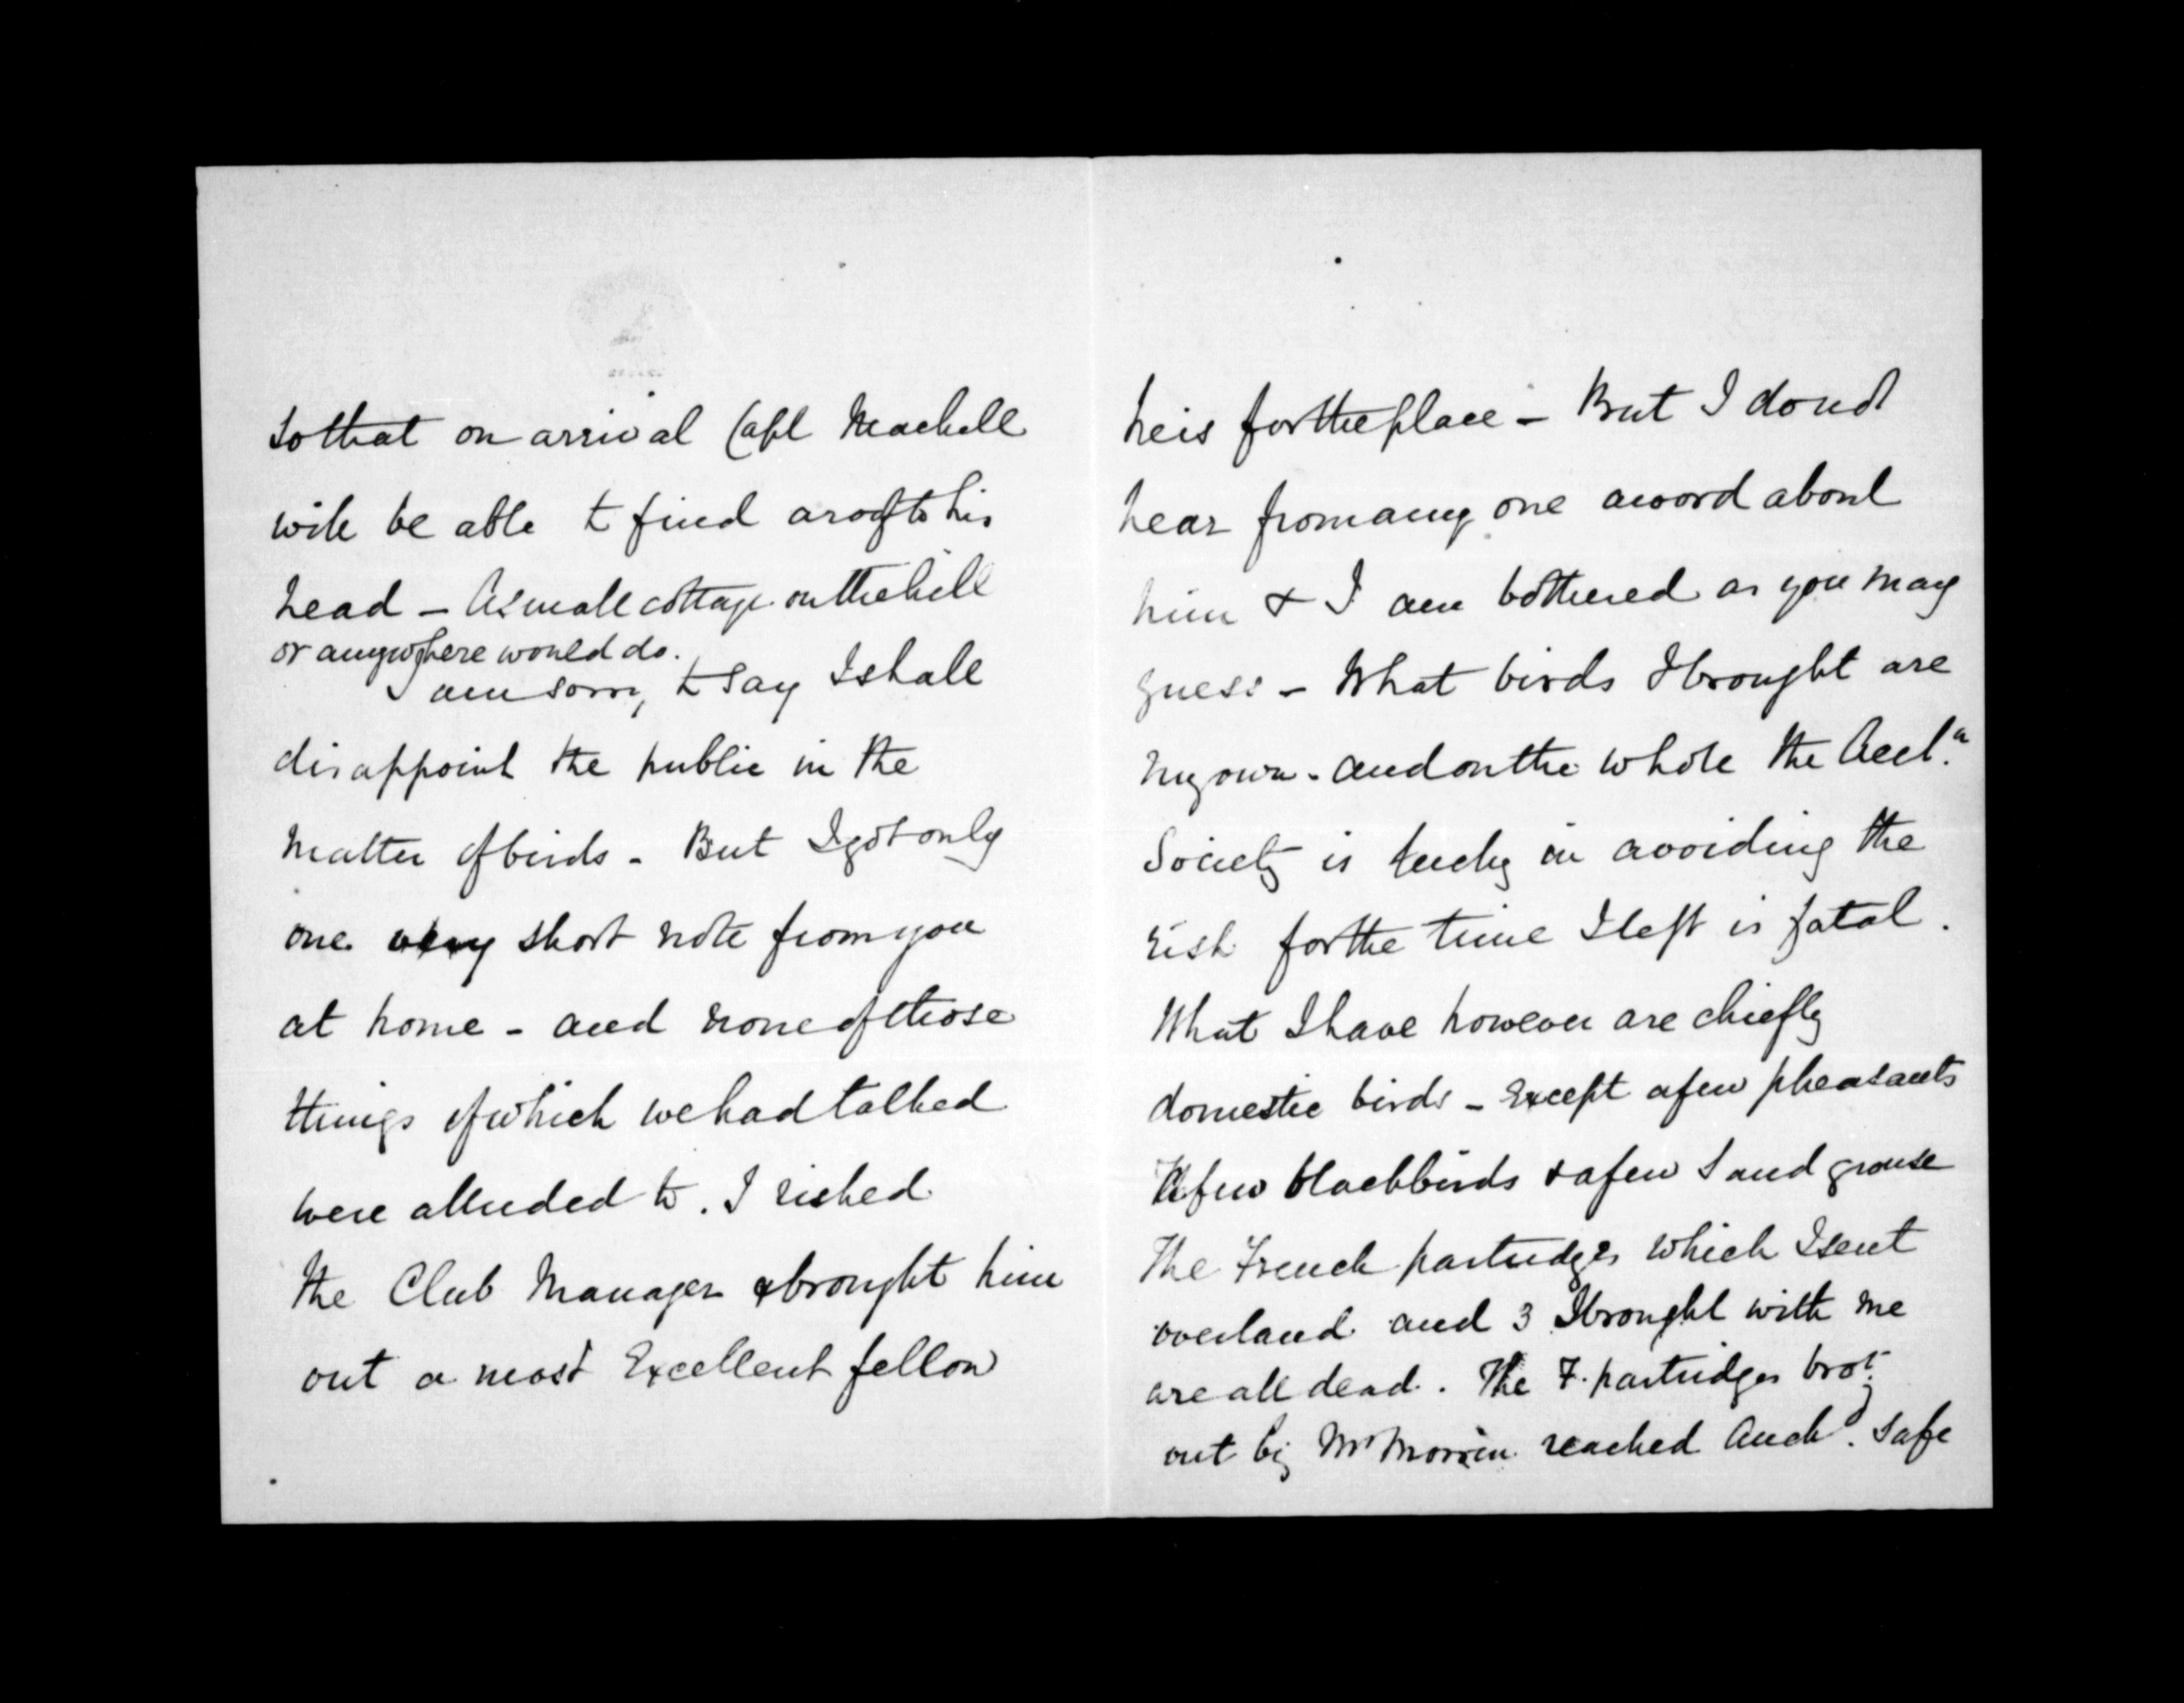 So that on arrival Capt Machell
will be able to find a roof to his
head – A small cottage on the hill
or anywhere would do.
I am sorry to say I shall
disappoint the public in the
matter of birds – But I got only
one very short note from you
at home – and none of those
things of which we had talked
were alluded to. I risked
the Club Manager & brought him
out a most excellent fellow
he is for the place – But I do not
hear from any one a word about
him & I am bothered as you may
guess – What birds I brought are
my own – and on the whole the Accl.n
Society is lucky in avoiding the
risk for the time I left is fatal.
What I have however are chiefly
domestic birds – Except a few pheasants
A few blackbirds & a few Sand grouse
The French partridges which I sent
overland and 3 I brought with me
are all dead. The F. partridges brot.
out by Mr Morrin reached Auckd. safe